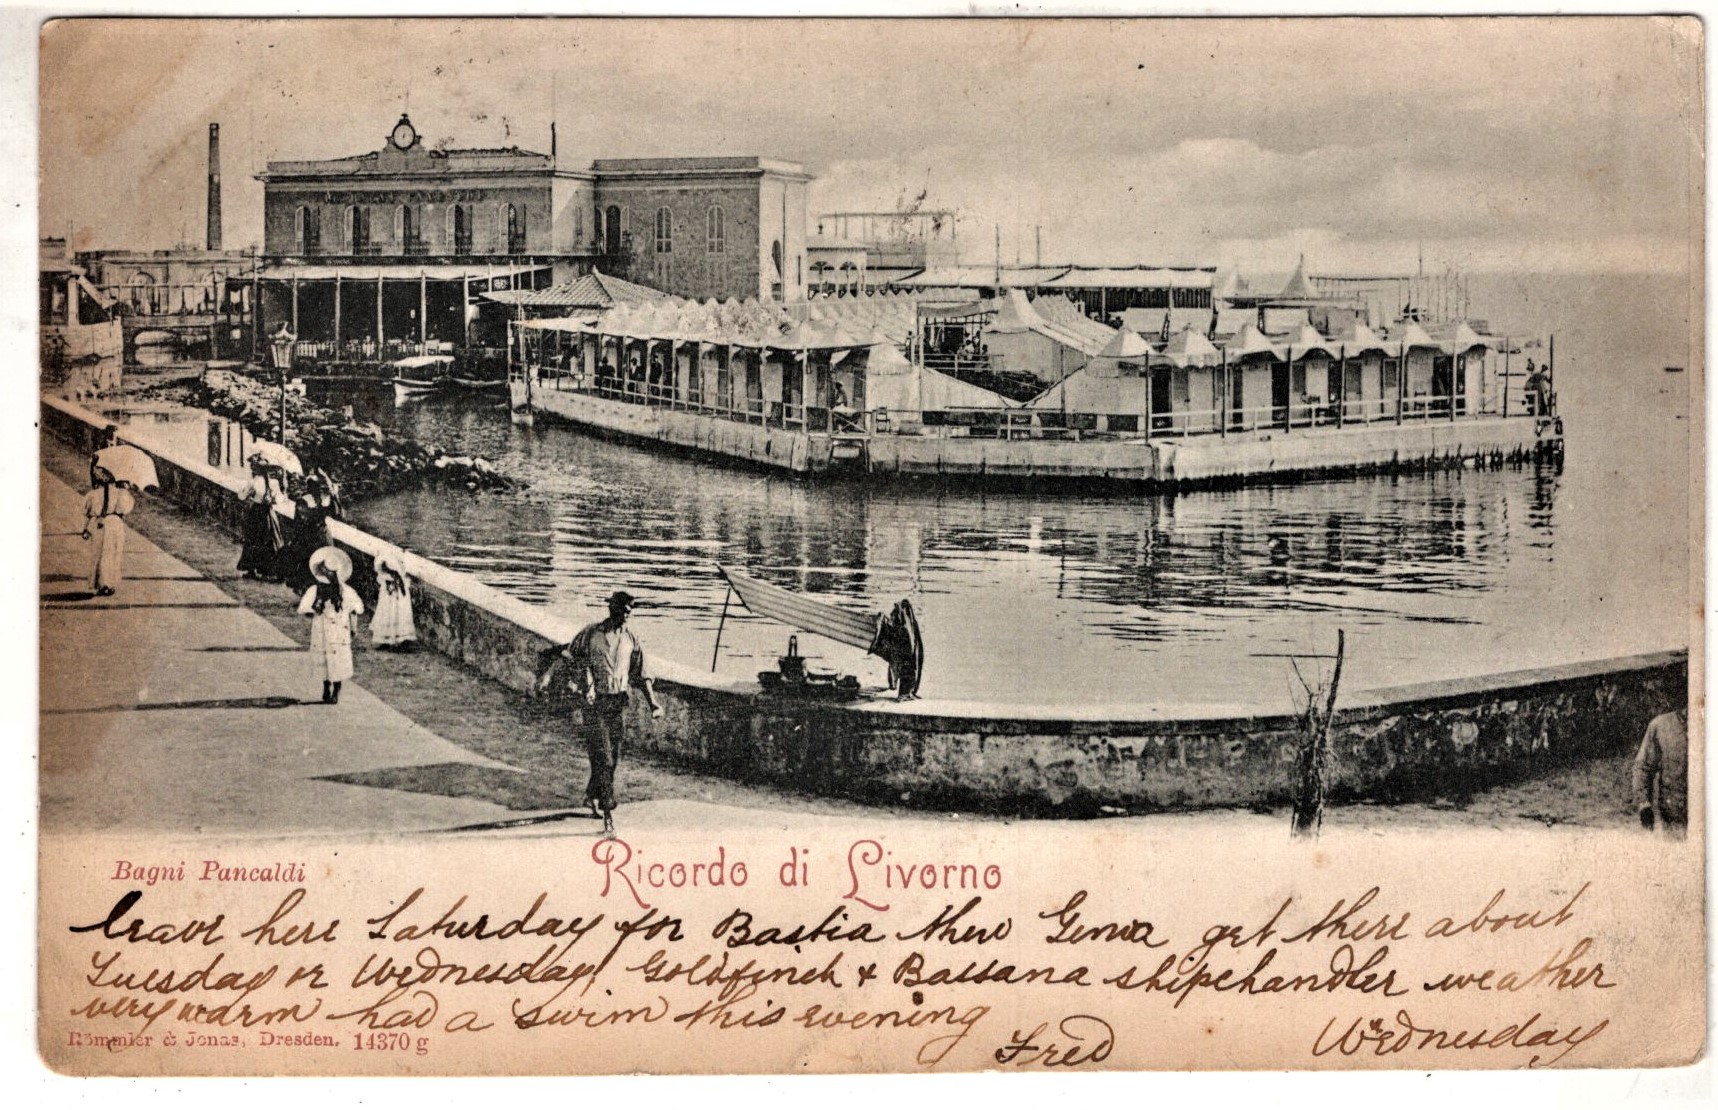 Bagni Pancaldi
Ricordo di Livorno
leave here Saturday for Bastia then Genoa get there about
Tuesday or Wednesday, Goldfinch & Bassana shipchandler weather
very warm had a swim this evening
Fred
Wednesday
Römmler & Jonas, Dresden. 14370 g